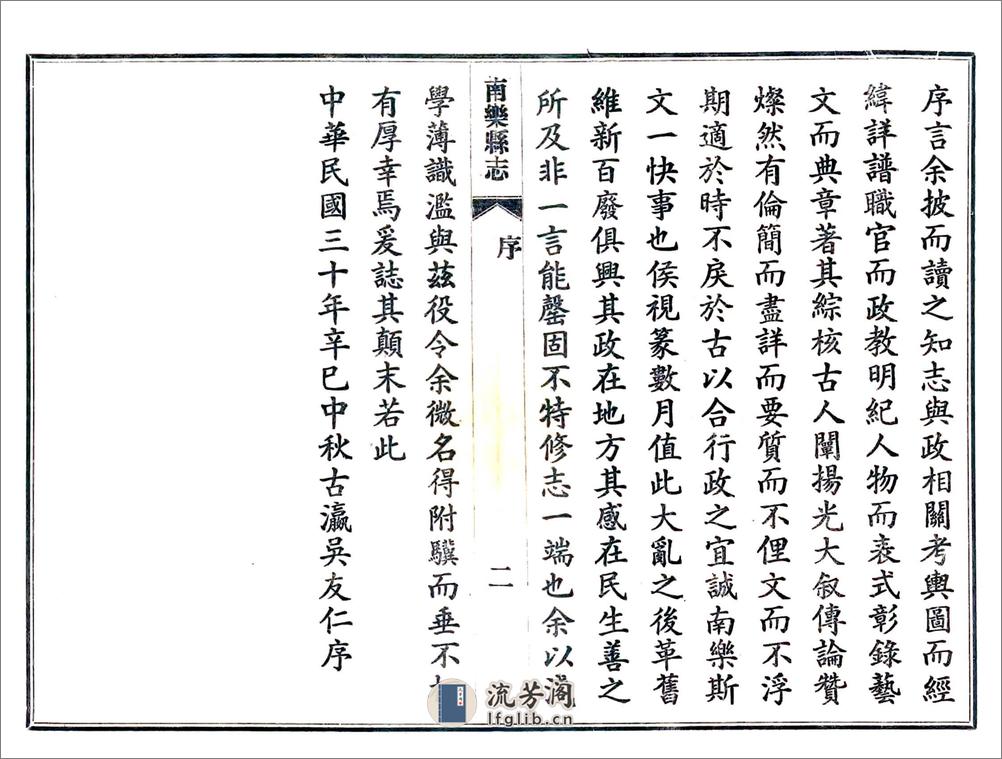 序言余披而讀之知志與政相關考輿圖而經
緯詳譜職官而政教明紀人物而表式彰錄藝
文而典章著其綜核古人闡揚光大叙傳論贊
燦然有倫簡而盡詳而要質而不俚文而不浮
期適於時不戾於古以合行政之宜誠南樂斯
文一快事也侯視篆數月值此大亂之後革舊
維新百廢俱興其政在地方其感在民生善之
所及非一言能罄固不特修志一端也余以
南樂縣志
序
二
學薄識濫與茲役令余微名得附驥而垂不
有厚幸焉爰誌其顛末若此
中華民國三十年辛巳中秋古瀛吳友仁序
流芳阁
lfglib.cn